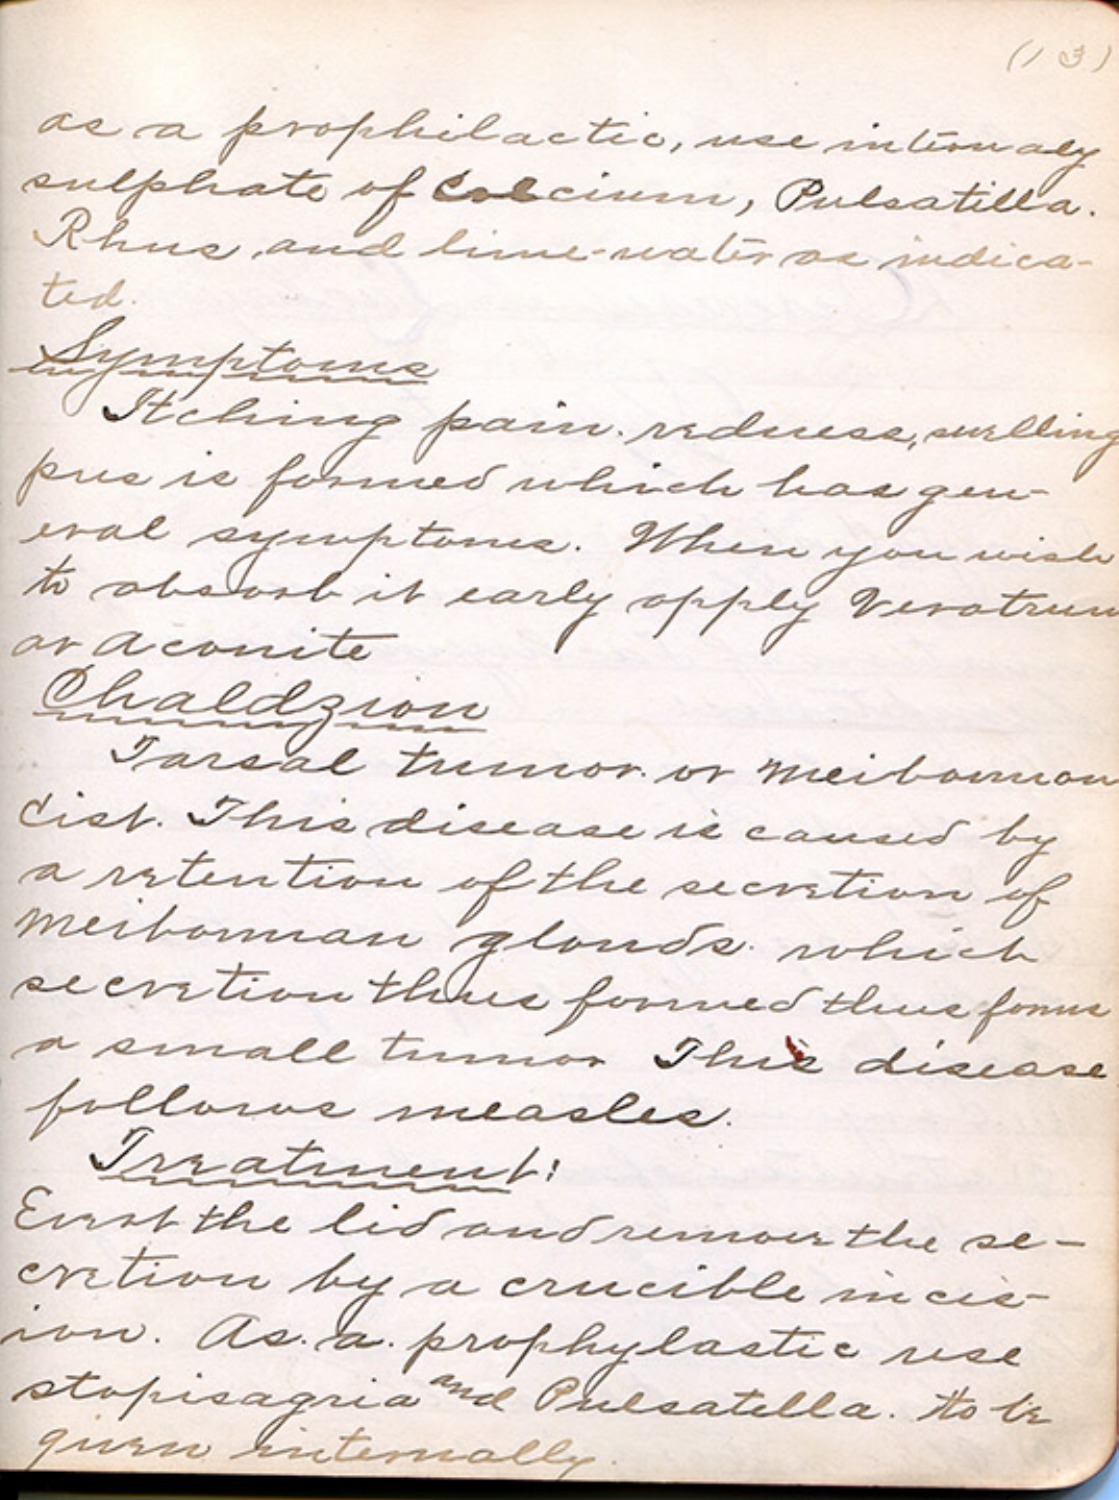 (13)
as a prophilactic, use internaly
sulphate of Calcium, Pulsatilla.
Rhus, and lime-water as indica-
ted.
Symptoms
Itching pain. redness, swelling
pus is formed which has gen-
eral symptoms. When you wish
to absorb it early apply Veratrum
or Aconite
Chaldzion
Tarsal tumor. or Meibomian
Cist. This disease is caused by
a retention of the secretion of
Meibomian glands. which
secretion thus formed thus forms
a small tumor This disease
follows measles.
Treatment:
Evert the lid and remove the se-
cretion by a crucible incis-
ion. As. a. prophylastic use
stopisagria and Pulsatella. to be
given internally.